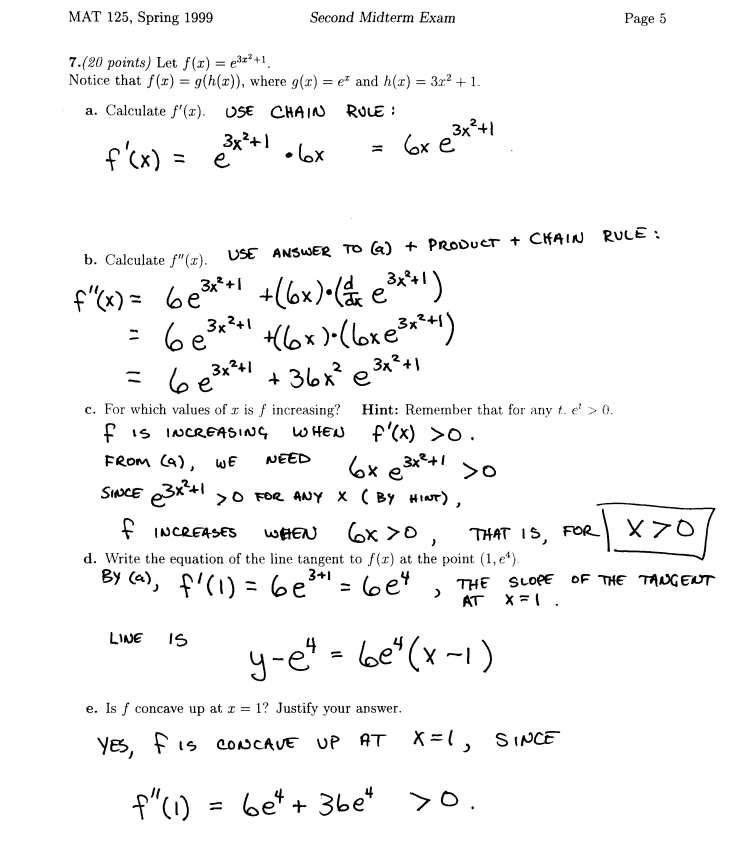 MAT 125, Spring 1999 Second Midterm Exam Page 5
7.(20 points) Let f(x) = e^{3x²+1}.
Notice that f(x) = g(h(x)), where g(x) = e^x and h(x) = 3x² + 1.
a. Calculate f′(x). USE CHAIN RULE :
f'(x) = e^{3x²+1} · 6x = 6x e^{3x²+1}
b. Calculate f″(x). USE ANSWER TO (a) + PRODUCT + CHAIN RULE :
f"(x) = 6e^{3x²+1} +(6x)·(d/dx e^{3x²+1})
= 6e^{3x²+1} +(6x)·(6xe^{3x²+1})
= 6e^{3x²+1} + 36x² e^{3x²+1}
c. For which values of x is f increasing? Hint: Remember that for any t. e^t > 0.
f IS INCREASING WHEN f'(x) >0 .
FROM (a), WE NEED 6x e^{3x²+1} >0
SINCE e^{3x²+1} >0 FOR ANY X ( BY HINT) ,
f INCREASES WHEN 6x>0 , THAT IS, FOR X>0
d. Write the equation of the line tangent to f(x) at the point (1, e⁴).
BY (a), f'(1) = 6e^{3+1} = 6e⁴ , THE SLOPE OF THE TANGENT
AT X=1 .
LINE IS y-e⁴ = 6e⁴(x-1)
e. Is f concave up at x = 1? Justify your answer.
YES, f IS CONCAVE UP AT X=1, SINCE
f"(1) = 6e⁴ + 36e⁴ >0 .